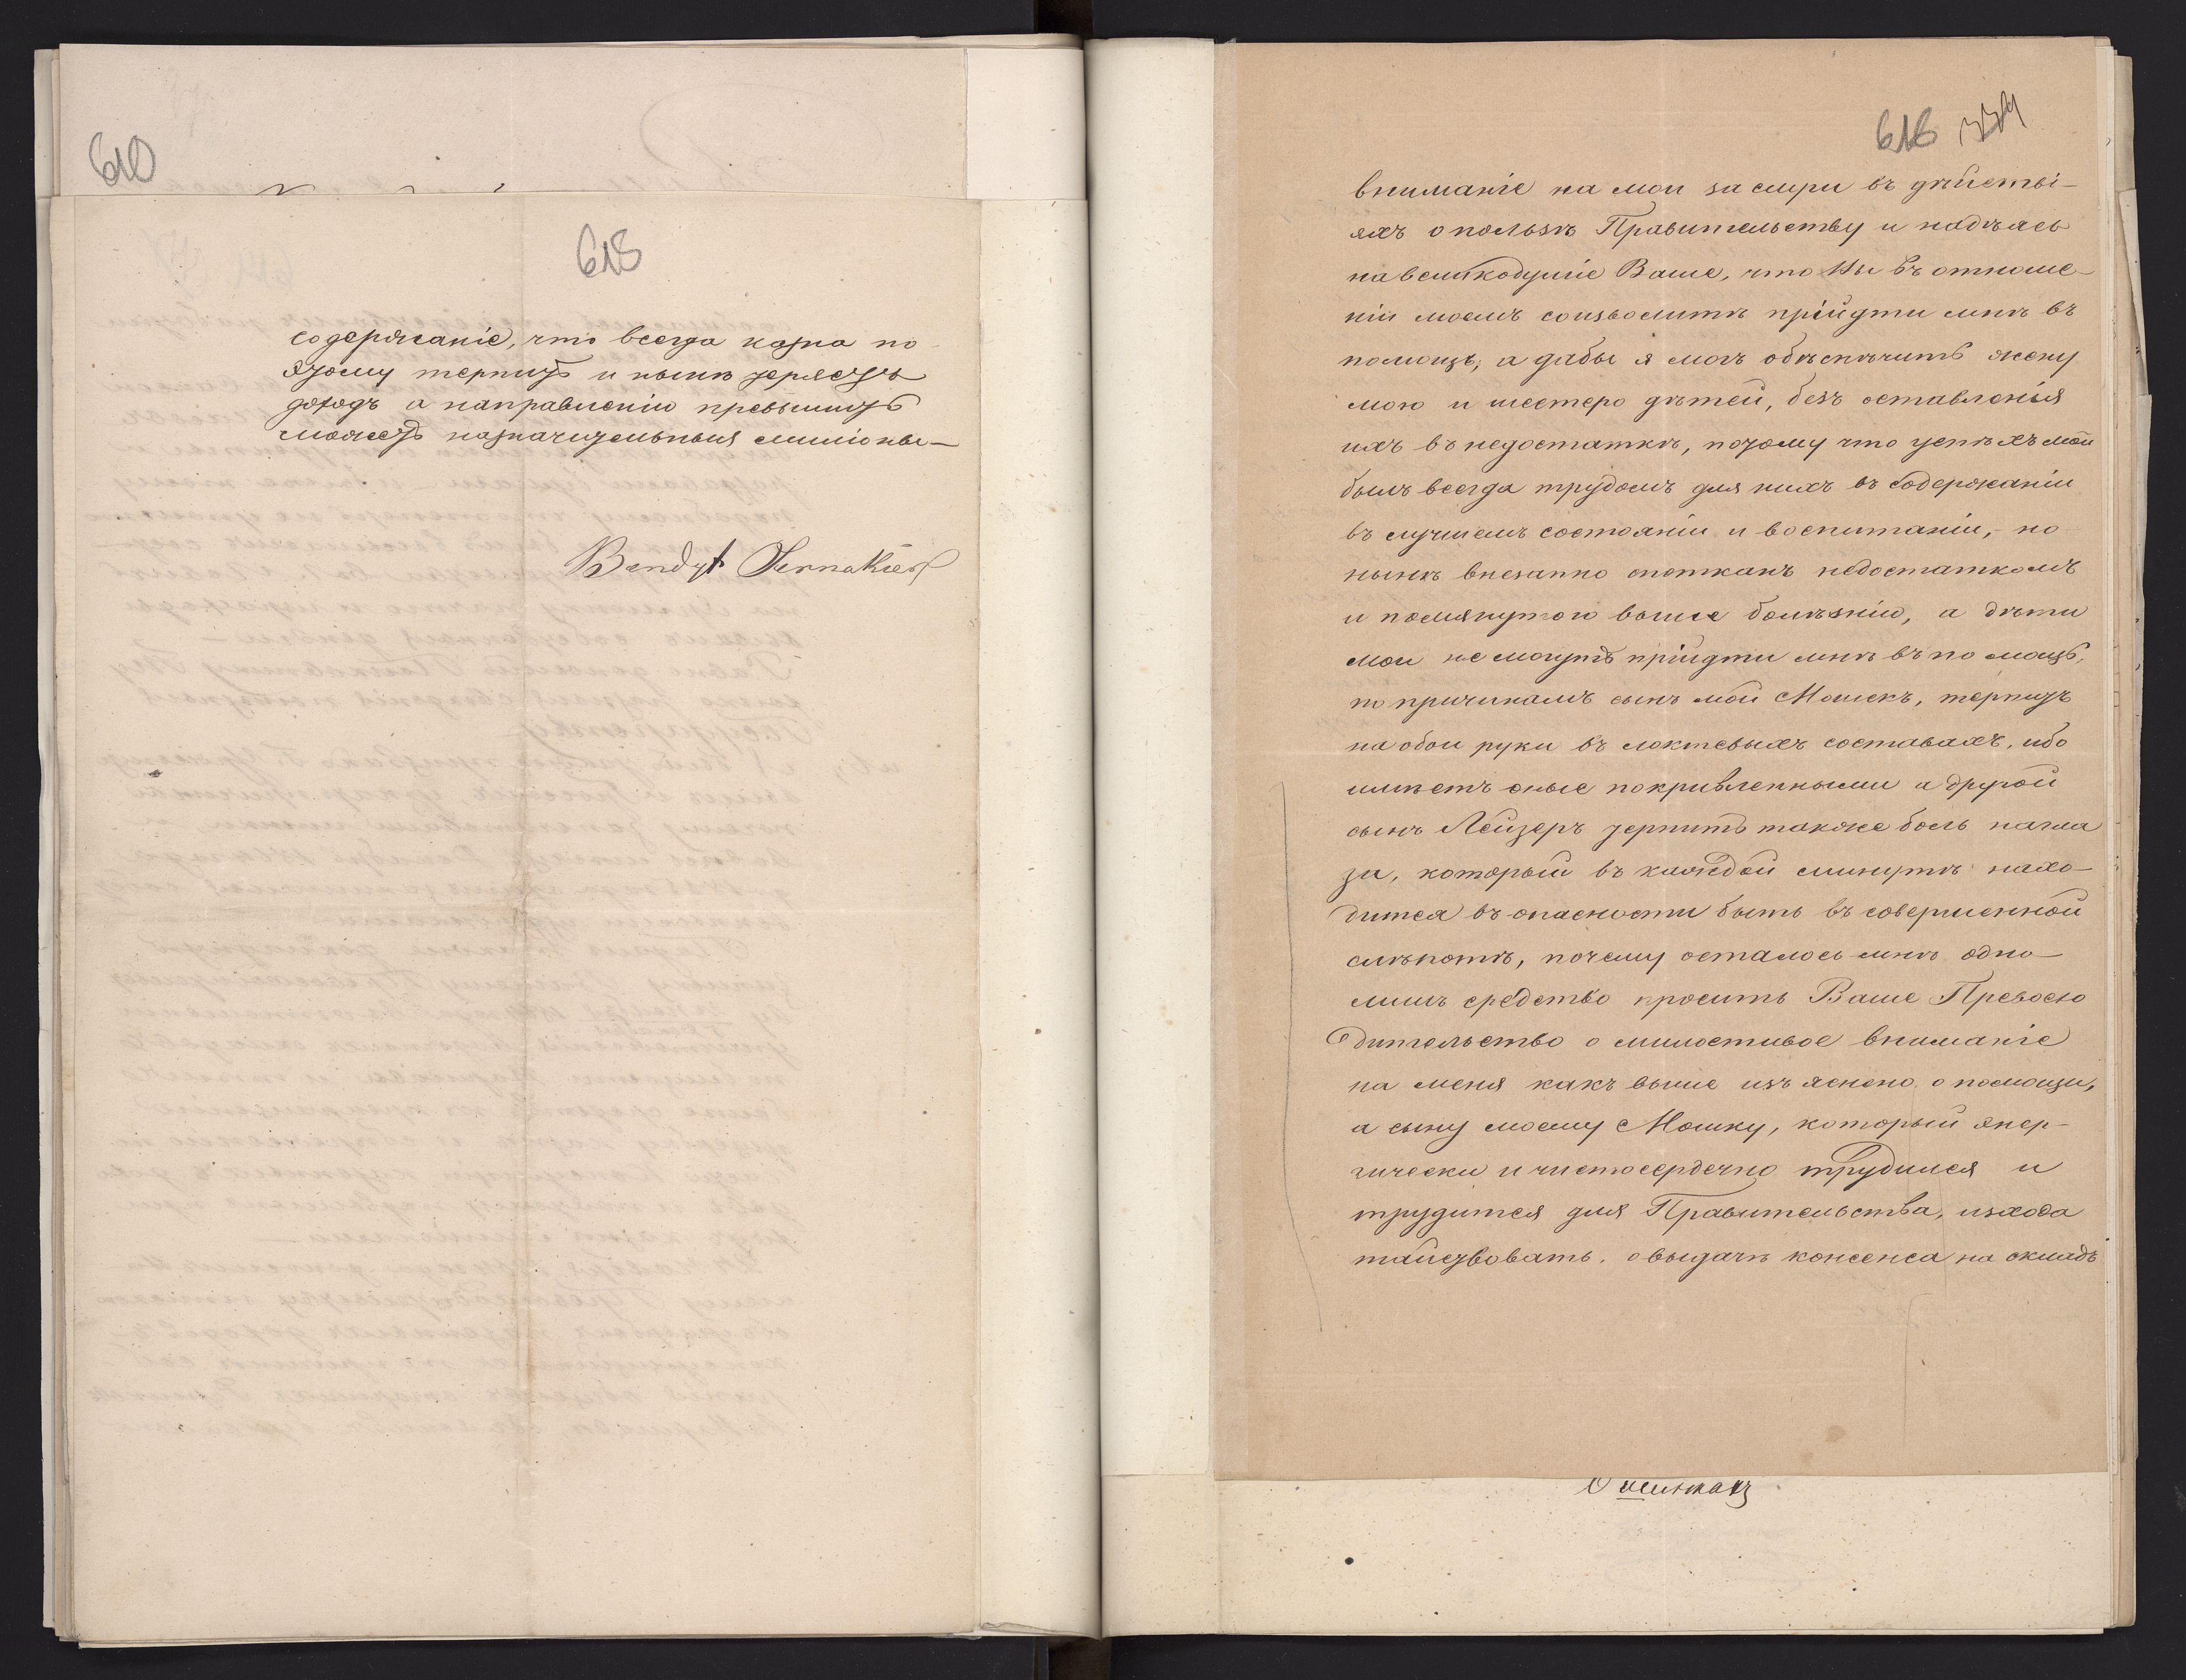 610
618
содержаніе, что всегда казна по
этому терпитъ и нынѣ теряетъ
доходъ а направленію превышитъ
можетъ назначительныя миліоны —
Bendyt
616
вниманіе на мои за мѣри въ дѣйстві-
яхъ о пользѣ Правительству и надѣясь
на великодушіе Ваше, что Вы въ отноше-
ніи моемъ соизволитѣ прійдти мнѣ въ
помощь, а дабы я могъ обѣспѣчить жену
мою и шестеро дѣтей, безъ оставленія
ихъ въ недостаткѣ, потому что успѣхъ мой
былъ всегда трудомъ для нихъ въ содержаніи
въ лучшемъ состояніи и воспитаніи, но
нынѣ внезапно спотканъ недостаткомъ
и помянутою выше болѣзнію, а дѣти
мои не могутъ прійдти мнѣ въ по мощь,
по причинамъ сынъ мой Мошекъ, терпитъ
на обои руки въ локтевыхъ составахъ, ибо
имѣетъ оные покривленными а другой
сынъ Лейзеръ терпитъ также боль на гла
за, который въ каждой минутѣ нахо-
дится въ опасности быть въ совершенной
слѣпотѣ, почему осталось мнѣ одно-
лишь средство просить Ваше Превосхо
дительство о милостивое вниманіе
на меня какъ выше изъ яснено о помощи,
а сыну моему Мошку, который энер-
гически и чистосердечно трудился и
трудится для Правительства, исхода
тайствовать о выдачѣ консенса на складъ